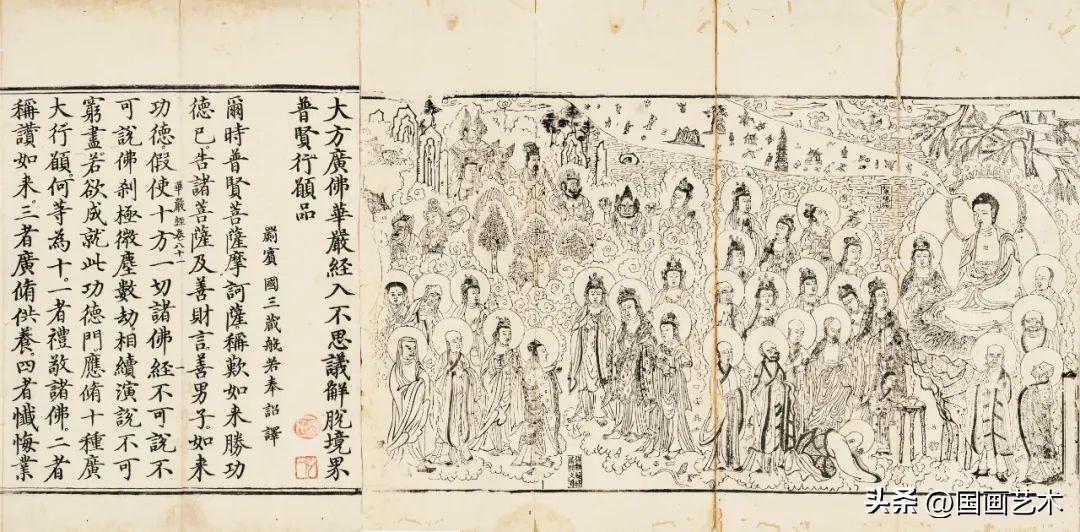 大方廣佛華嚴経入不思議解脫境界
普賢行願品
罽賓國三藏般若奉詔譯
爾時普賢菩薩摩訶薩稱歎如来勝功
德已告諸菩薩及善財言善男子如来
功德假使十方一切諸佛經不可說不
華嚴經卷八十一
可說佛刹極微塵數劫相續演說不可
窮盡若欲成就此功德門應脩十種廣
大行願何等為十一者禮敬諸佛二者
稱讚如来三者廣脩供養四者懺悔業
头条@国画艺术